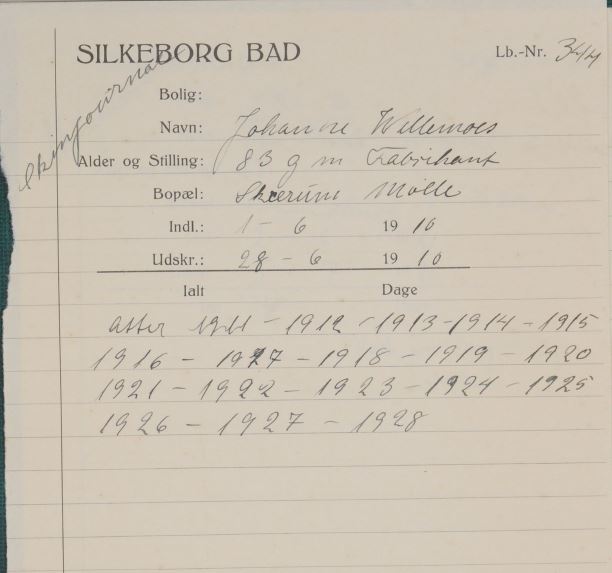 SILKEBORG BAD
Lb.-Nr. 344
Skinjournal
Bolig:
Navn: Johanne Willemoes
Alder og Stilling: 83 g m Fabrikant
Bopæl: Skærum Mølle
Indl.: 1 - 6 1910
Udskr.: 28 - 6 1910
Ialt Dage
atter 1911 - 1912 - 1913 - 1914 - 1915
1916 - 1917 - 1918 - 1919 - 1920
1921 - 1922 - 1923 - 1924 - 1925
1926 - 1927 - 1928